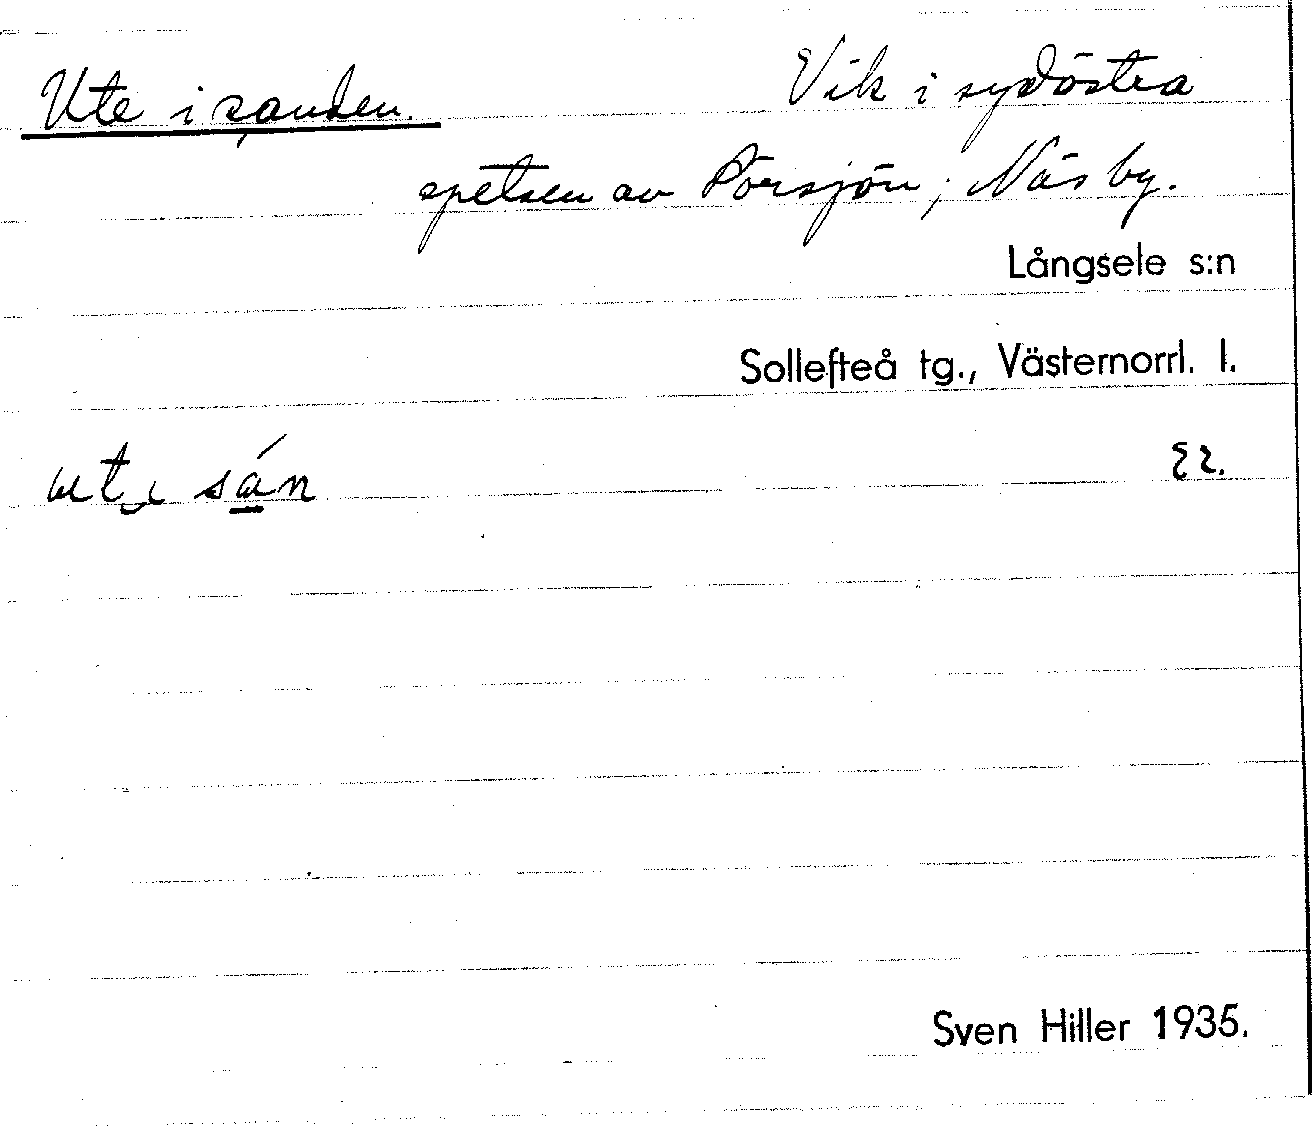 Ute i sanden. Vik i sydöstra
spetsen av Pörsjön; Näs by.
Långsele s:n
Sollefteå tg., Västernorrl. l.
sán
Sven Hiller 1935.